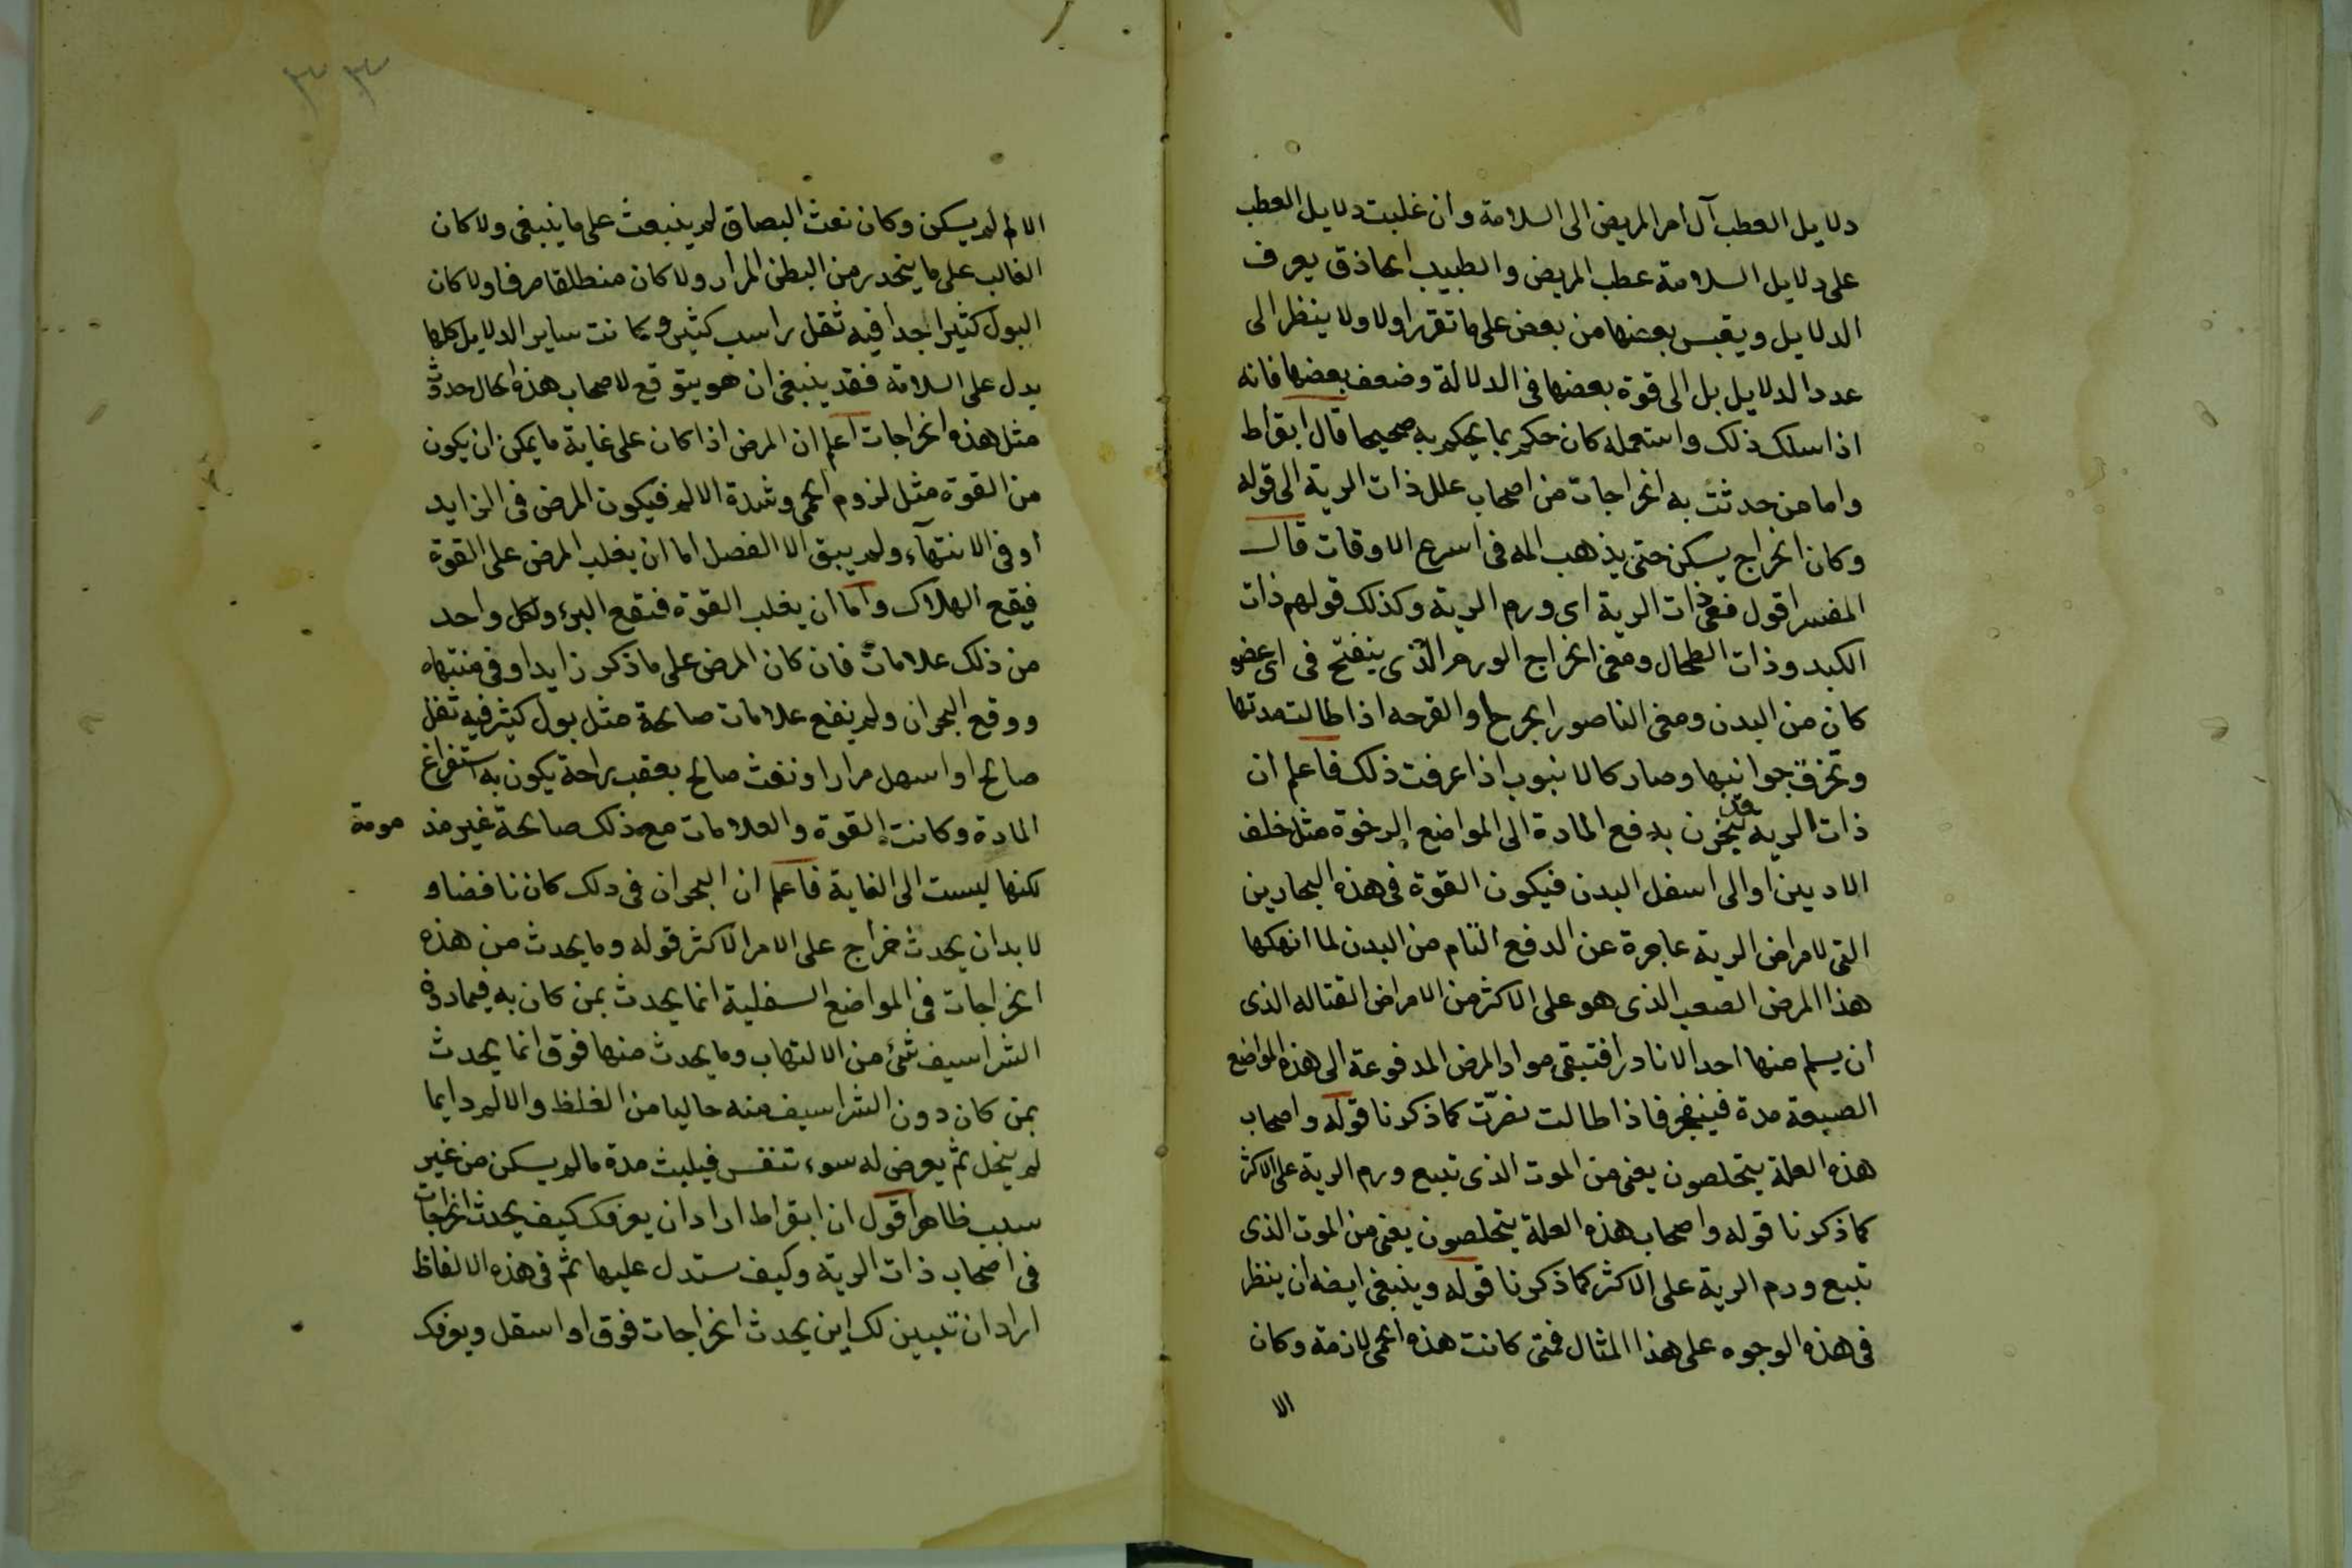 دلايل العطب آل امر المريض الى السلامة وان غلبت دلايل العطب
على دلايل السلامة عطب المريض والطبيب الحاذق يعرف
الدلايل ويقيس بعضها من بعض على ما تقرر اولا ولا ينظر الى
عدد الدلايل بل الى قوة بعضها فى الدلالة وضعف بعضها فانه
اذا سلك ذلك واستعمله كان حكمه بما يحكم به صحيحا قال ابقراط
واما من حدثت به الخراجات من اصحاب علل ذات الرية الى قوله
وكان الخراج يسكن حتى يذهب المه فى اسرع الاوقات قال
المفسر اقول فمعنى ذات الرية اى ورم الرية وكذلك قولهم ذات
الكبد وذات الطحال ومعنى الخراج الورم الذى ينفتح فى اى عضو
كان من البدن ومعنى الناصور الجرح او القرحه اذا طالت مدتها
وتخزفت جوانبها وصار كالانبوب اذا عرفت ذلك فاعلم ان
ذات الريه قد بدفع المادة الى المواضع الرخوة مثل خلف
الاديين او الى اسفل البدن فيكون القوة فى هذه البحارين
التى لامراض الرية عاجزة عن الدفع التام من البدن لما انهكها
هذا المرض الصعب الذى هو على الاكثر من الامراض القتاله الذى
ان يسلم منها احد الا نادرا فتبقى مواد المرض المدفوعة الى هذه المواضع
الضيقة مدة فينفجر فاذا طالت نصرّت كما ذكرنا قوله واصحاب
هذه العلة يتخلصون يعنى من الموت الذى تتبع ورم الرية على الاكثر
كما ذكرنا قوله واصحاب هذه العلة يتخلصون يعنى من الموت الذى
تتبع ورم الرية على الاكثر كما ذكرنا قوله وينبغى ايضه ان ينظر
فى هذه الوجوه على هذا المثال فمتى كانت هذه الحمى لازمة وكان
الا
٣٣
الالم لم يسكن وكان نفث البصاق لم ينبعث على ما ينبغى ولا كان
الغالب على ما ينحدر من البطن المرار ولا كان منطلقا صرفا ولا كان
البول كثيرا جدا فيه ثقل راسب كثير وكانت ساير الدلايل كلها
يدل على السلامة فقد ينبغى ان هو يتوقع لاصحاب هذه الحال حدوث
مثل هذه الخراجات اعلم ان المرض اذا كان على غاية ما يمكن ان يكون
من القوة مثل لزوم الحمى وشدة الالم فيكون المرض فى الزايد
او فى الانتهآء ولم يبق الا الفصل اما ان يغلب المرض على القوة
فيقع الهلاك واما ان يغلب القوة فتقع البرء ولكل واحد
من ذلك علامات فان كان المرض على ما ذكر زايدا وفى منتهاه
ووقع البحران ولم نفع علامات صالحة مثل بول كثير فيه ثقل
صالح او اسهل مرارا ونفث صالح بعقب راحة يكون به استفراغ
المادة وكانت القوة والعلامات مع ذلك صالحة غير مذمومة
لكنها ليست الى الغاية فاعلم ان البحران فى ذلك كان ناقضا و
لا بد ان يحدث خراج على الامر الاكثر قوله وما يحدث من هذه
الخراجات فى المواضع السفلية انما يحدث بمن كان به فيما دون
الشراسيف شئ من الالتهاب وما يحدث منها فوق انما يحدث
بمن كان دون الشراسيف منه خاليا من الغلظ والالم دايما
لم ينحل ثم يعرض له سوء تنفس فيلبث مدة ما لم يسكن من غير
سبب ظاهر اقول ان ابقراط اراد ان يعرفك كيف يحدث الخراجات
فى اصحاب ذات الرية وكيف ستدل عليها ثم فى هذه الالفاظ
اراد ان تبيين لك اين يحدث الخراجات فوق او اسفل ويعرفك